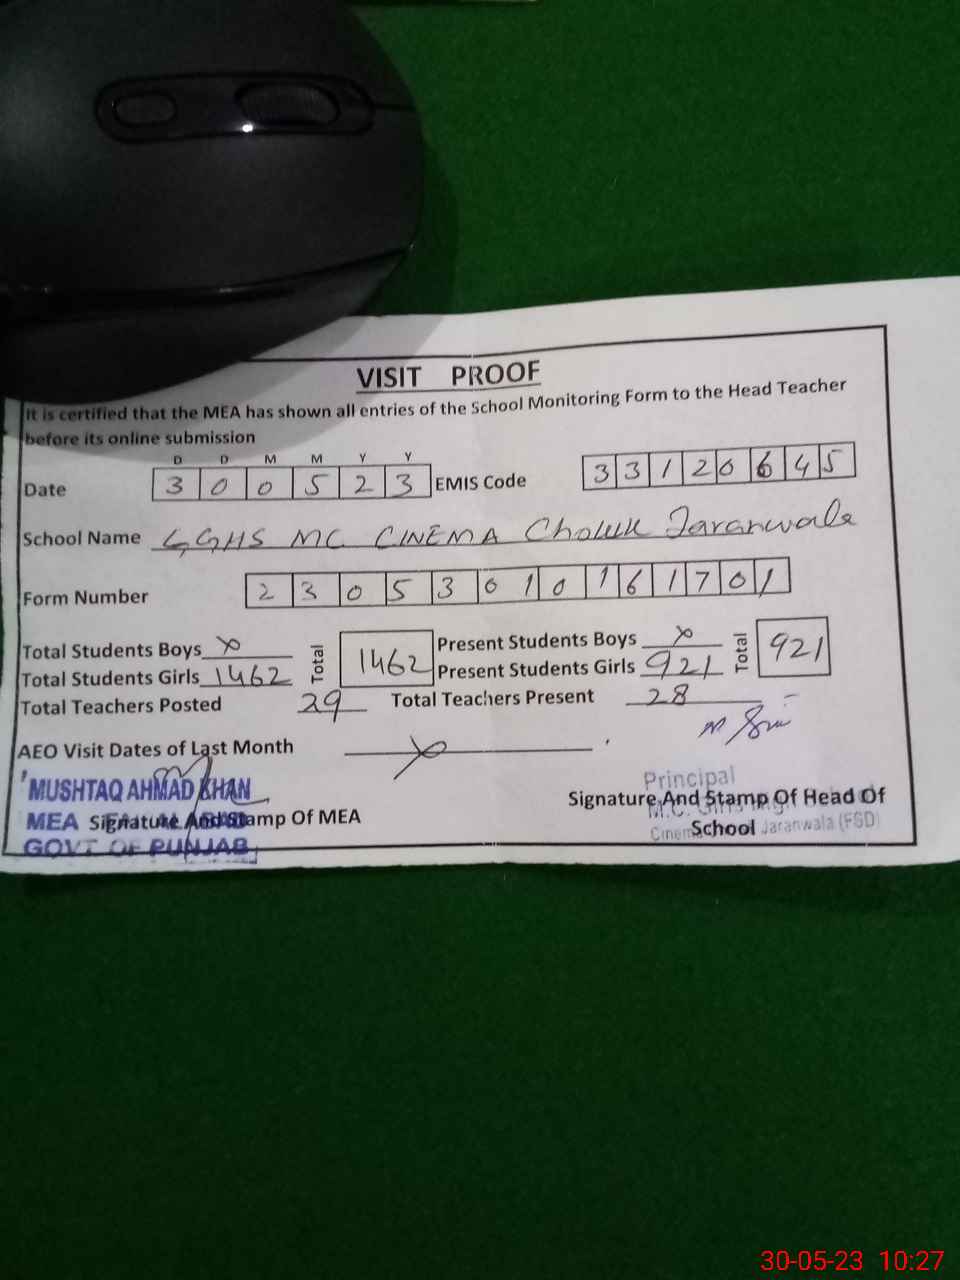 VISIT PROOF
It is certified that the MEA has shown all entries of the School Monitoring Form to the Head Teacher
before its online submission
D D M M Y Y
Date 3 0 0 5 2 3 EMIS Code 3 3 1 2 0 6 4 5
School Name GGHS MC CINEMA Chowk Jaranwala
Form Number 2 3 0 5 3 0 1 0 1 6 1 7 0 1
Total Students Boys x Total 1462 Present Students Boys x Total 921
Total Students Girls 1462 Present Students Girls 921
Total Teachers Posted 29 Total Teachers Present 28
AEO Visit Dates of Last Month x
MUSHTAQ AHMAD KHAN Principal
MEA Signature And Stamp Of MEA Signature And Stamp Of Head Of
M.C. Girls High
GOVT OF PUNJAB Cinema School Jaranwala (FSD)
30-05-23 10:27